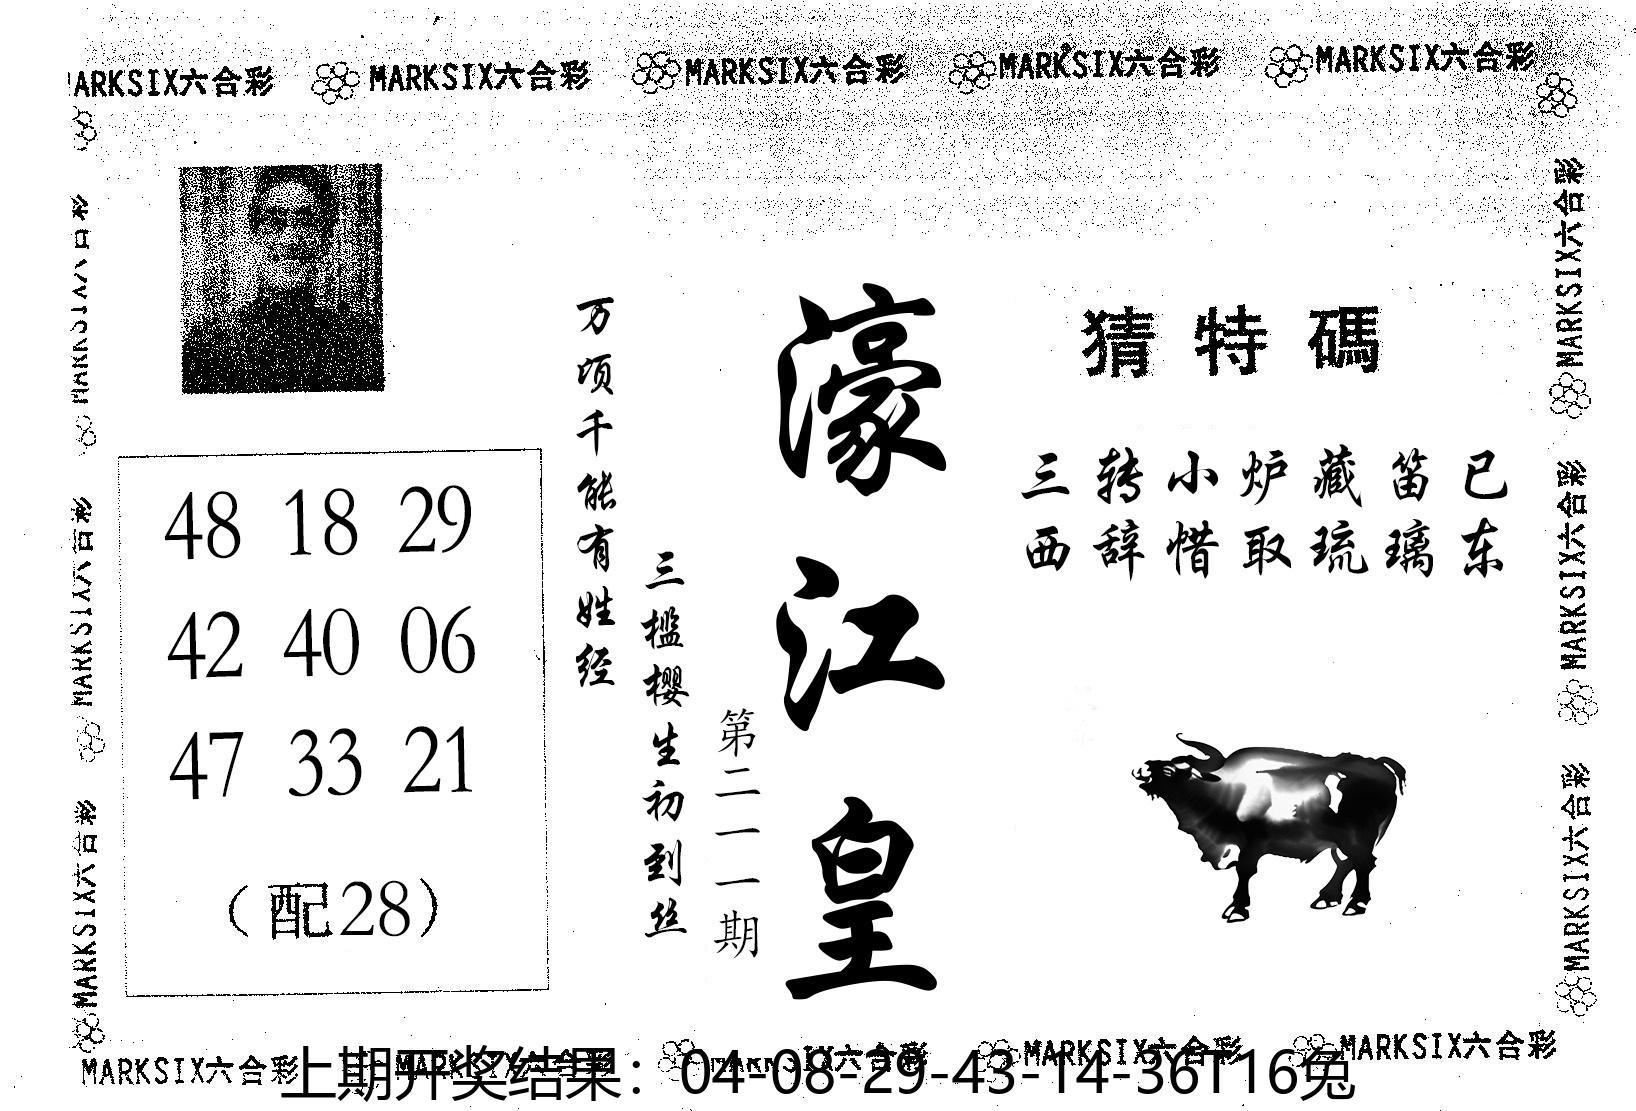 MARKSIX六合彩 MARKSIX六合彩 MARKSIX六合彩 MARKSIX六合彩 MARKSIX六合彩
MARKSIX六合彩
MARKSIX六合彩
MARKSIX六合彩
MARKSIX六合彩
MARKSIX六合彩
MARKSIX六合彩
猜特碼
三转小炉藏笛已
西辞惜取琉璃东
濠江皇
第二一一期
三槛樱生初到丝
万顷千能有姓经
48 18 29
42 40 06
47 33 21
（配28）
MARKSIX六合彩 MARKSIX六合彩 MARKSIX六合彩 MARKSIX六合彩 MARKSIX六合彩
上期开奖结果：04-08-29-43-14-36T16兔